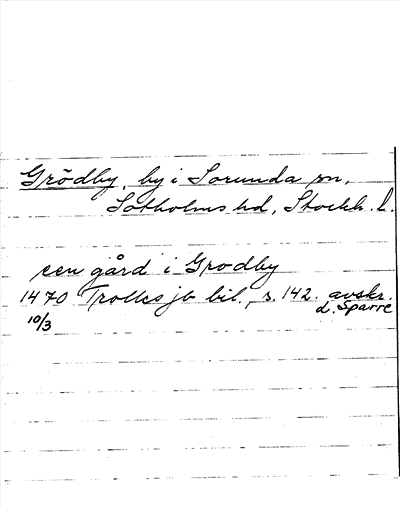 Grödby, by i Sorunda sn,
Sotholms hd, Stockh. l.
een gård i Grodby
1470 Trolles jb bil., s. 142. avskr.
10/3 d. Sparre